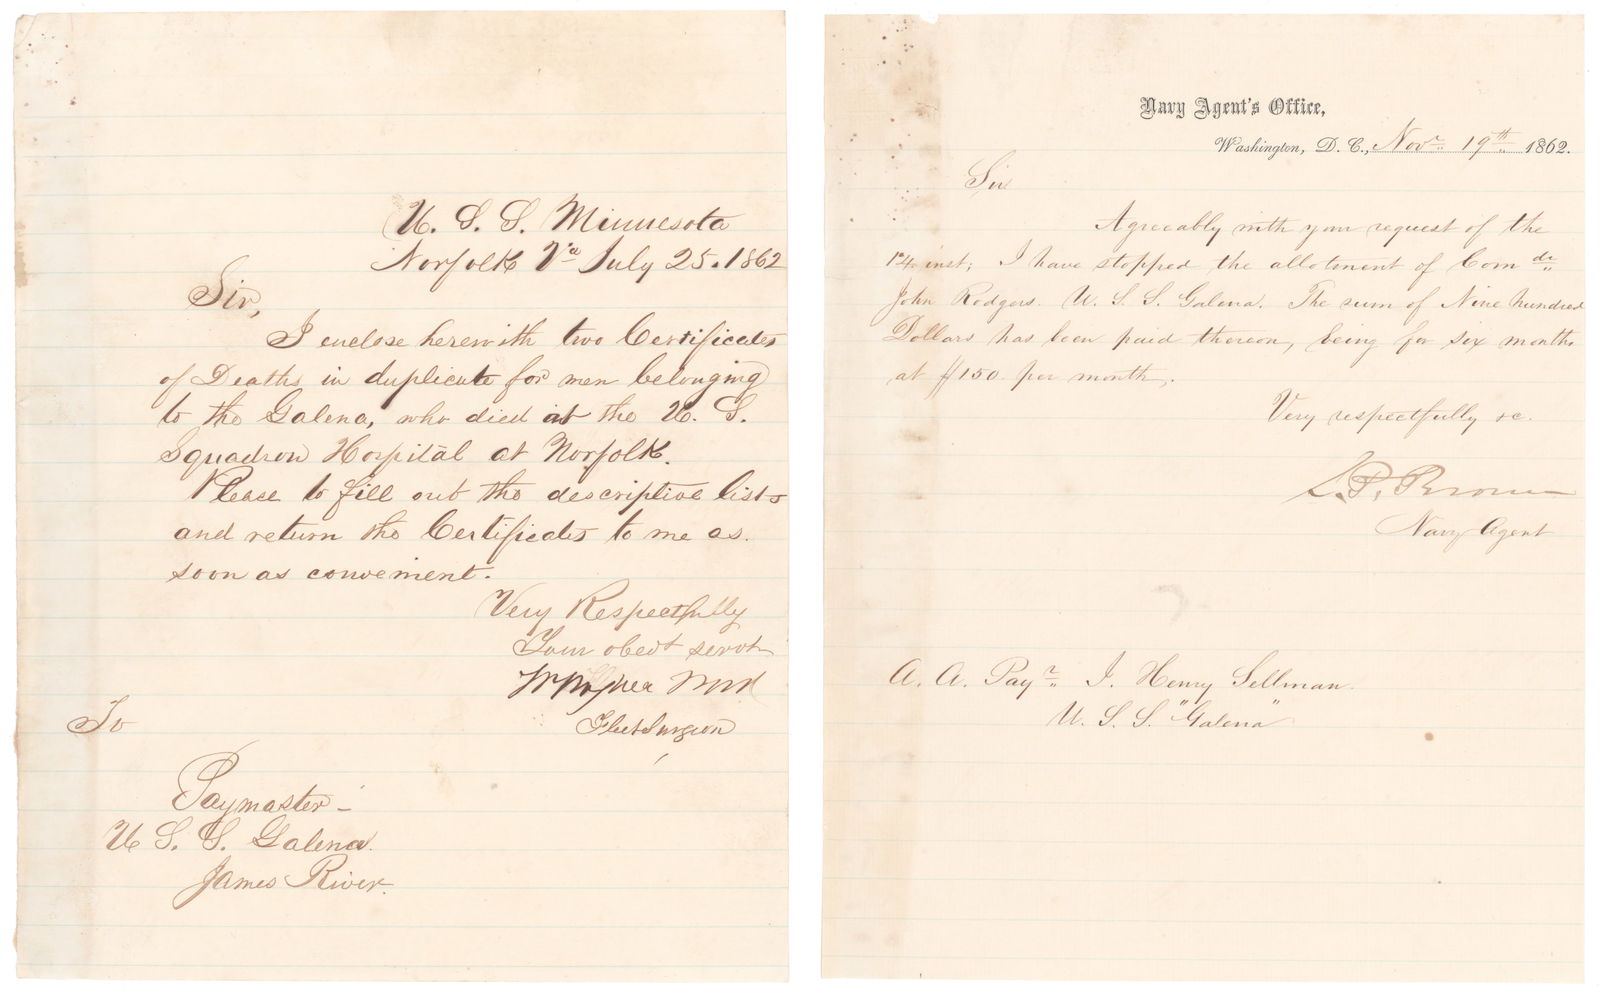 U. S. S. Minnesota
Norfolk Va July 25. 1862
Sir,
I enclose herewith two Certificates
of Deaths in duplicate for men belonging
to the Galena, who died at the U. S.
Squadron Hospital at Norfolk.
Please to fill out the descriptive lists
and return the Certificates to me as
soon as convenient.
Very Respectfully
Your obedt servt
Fleet Surgeon
To
Paymaster-
U S. S. Galena.
James River.
Navy Agent's Office,
Washington, D. C., Novr 19th 1862.
Sir
Agreeably with your request of the
14 inst; I have stopped the allotment of Comdr
John Rodgers. U. S. S. Galena. The sum of Nine hundred
Dollars has been paid thereon, being for six months
at $150 per month.
Very respectfully &c.
S. P. Brown
Navy Agent
A. A. Payr J. Henry Sellman.
U. S. S. "Galena"